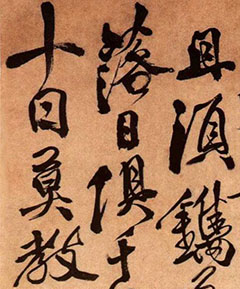 且須鐫
落日俱
十日莫教